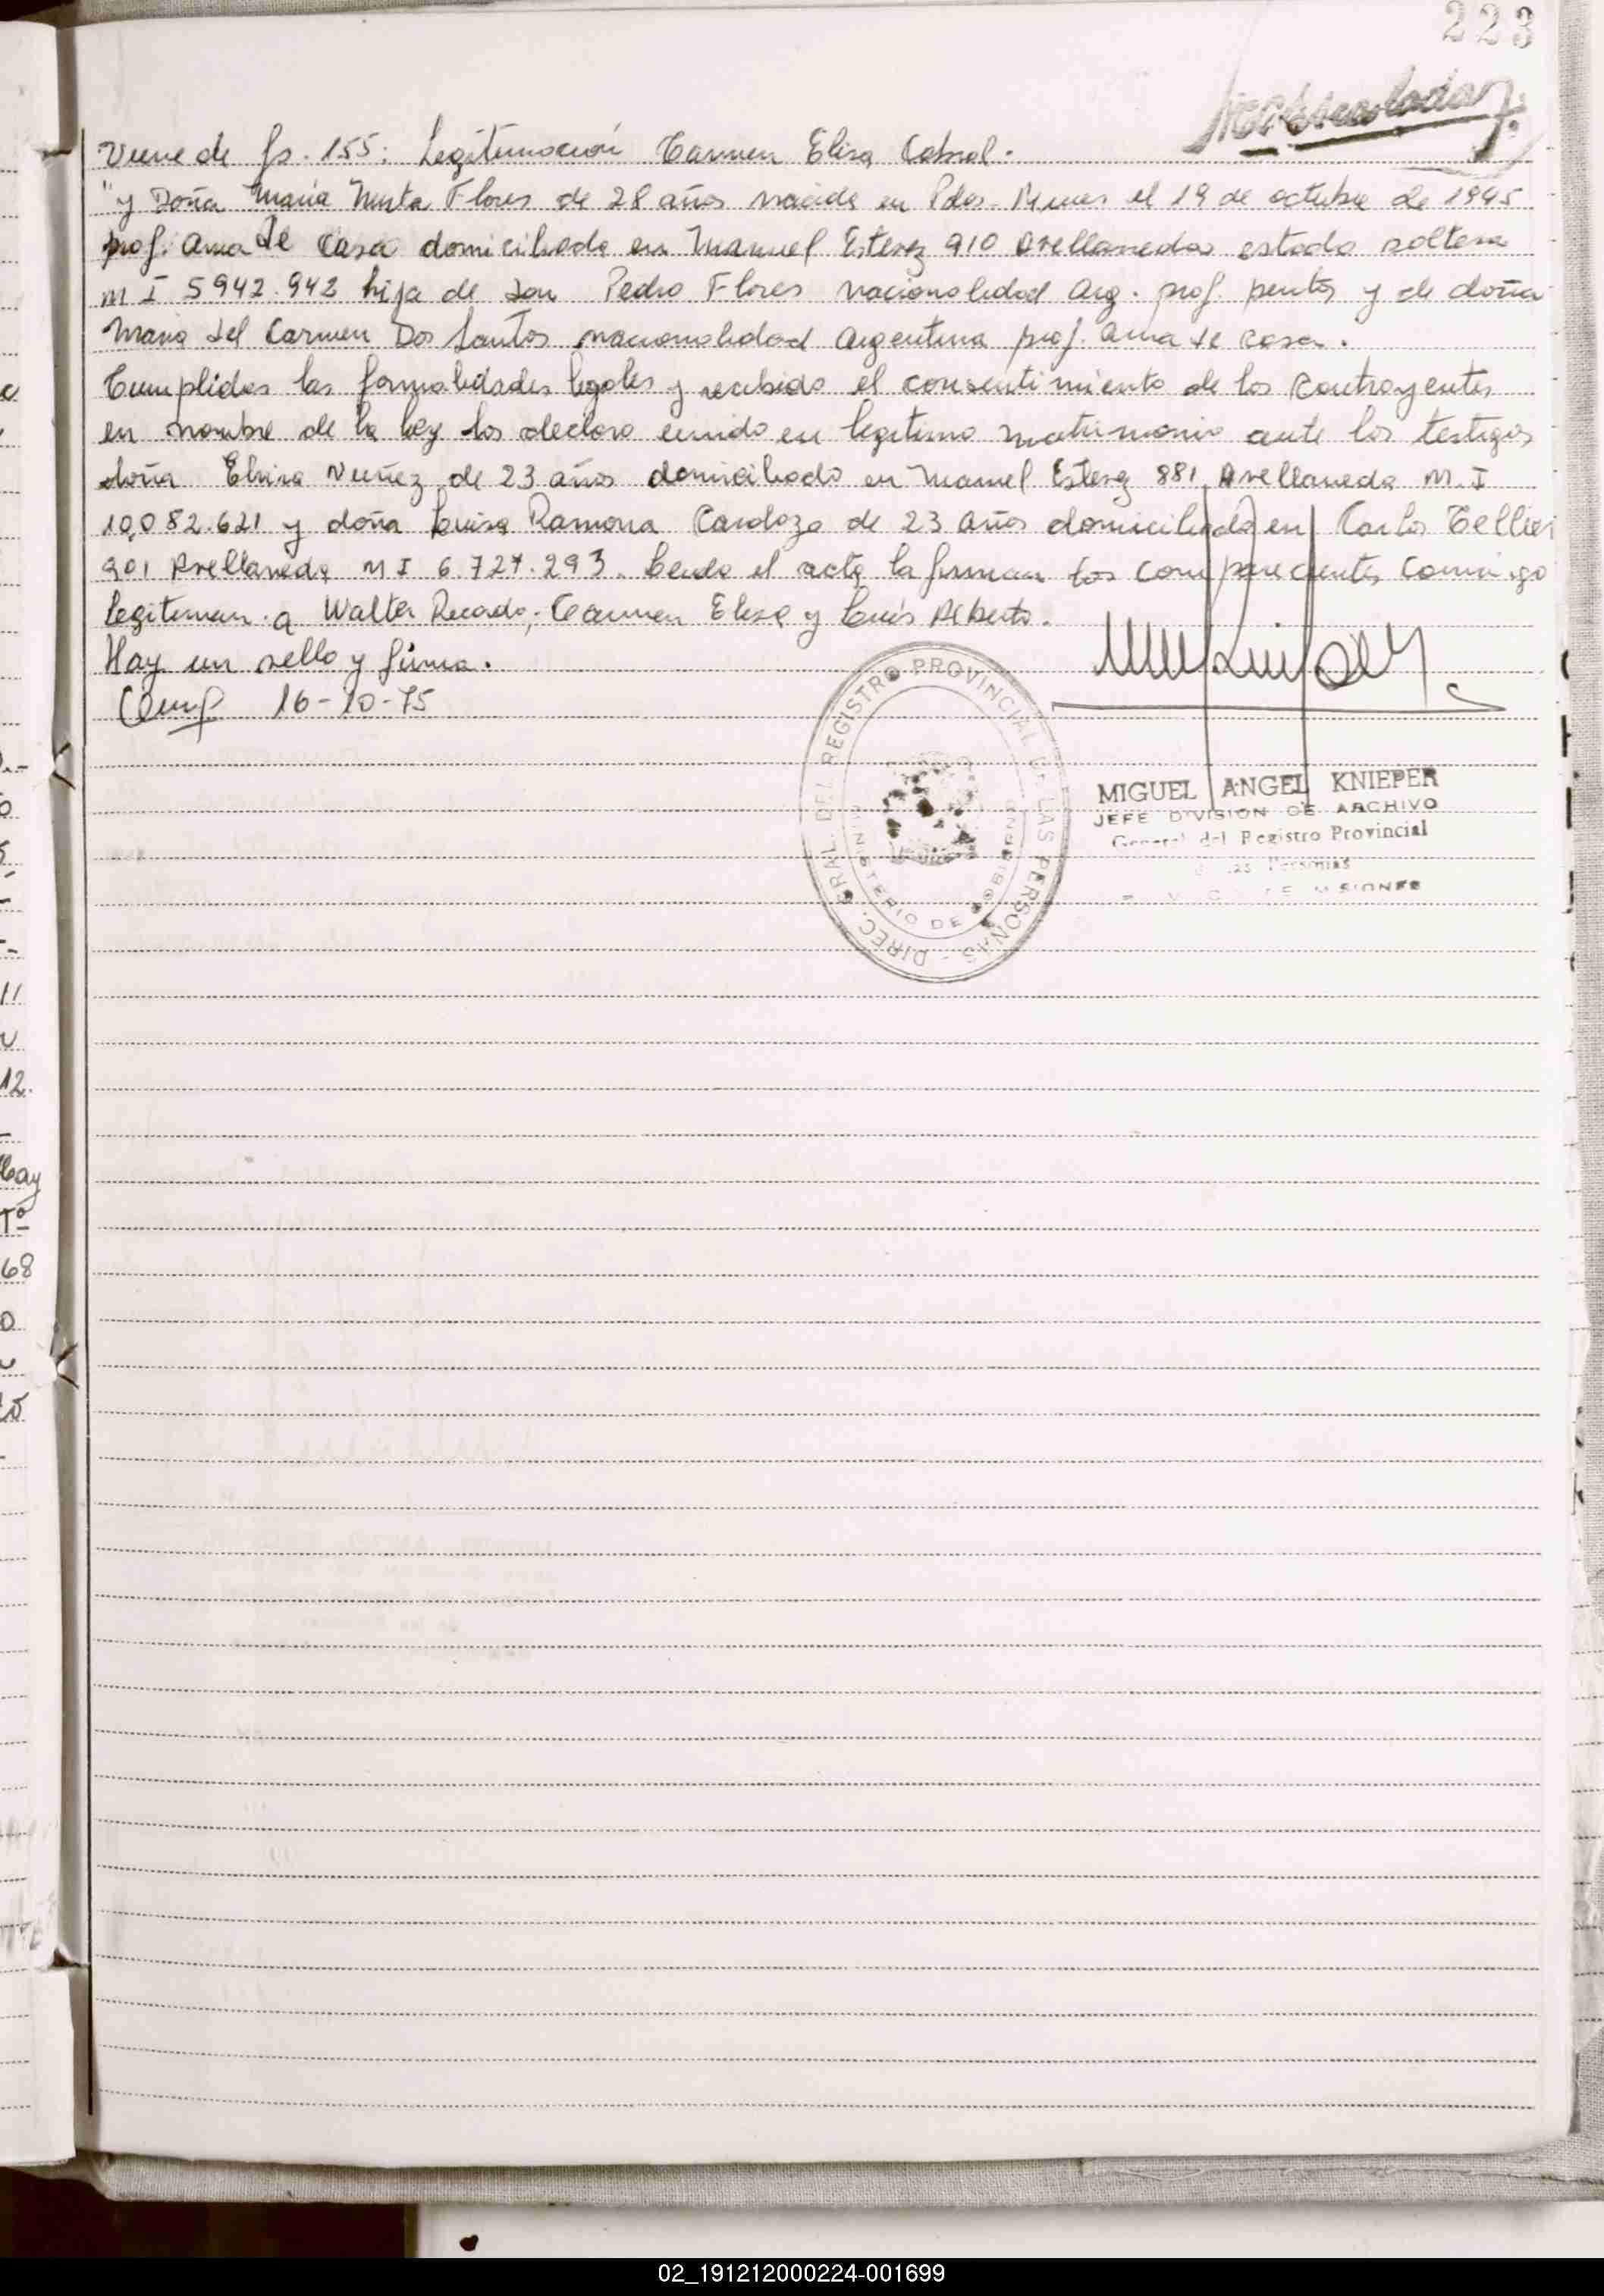 223
Viene de fs. 155: Legitimación Carmen Elisa Cabral.
"y Doña María Mirta Flores de 28 años nacida en Pdas. Mnes el 19 de octubre de 1945
prof. ama de casa domiciliada en Manuel Estevez 910 Avellaneda estado soltera
M I 5942.942 hija de Don Pedro Flores nacionalidad Arg. prof. y de doña
Maria del Carmen Dos Santos nacionalidad Argentina prof. ama de casa.
Cumplidas las formalidades legales y recibido el consentimiento de los contrayentes
en nombre de la ley los declaro unido en legitimo matrimonio ante los testigos
doña Elvira Nuñez de 23 años domiciliado en Manuel Estevez 881 Avellaneda M.I
10.082.621 y doña Luisa Ramona Cardozo de 23 años domiciliada en Carlos Tellier
901 Avellaneda M I 6.727.293. Leida el acta la firman los comparecientes conmigo
legitiman a Walter Ricardo, Carmen Elisa y Luis Alberto.
Hay un sello y firma.
Comp 16-10-75
DIREC. GRAL. DEL REGISTRO PROVINCIAL DE LAS PERSONAS -
MINISTERIO DE GOBIERNO
MIGUEL ANGEL KNIEPER
JEFE DIVISION DE ARCHIVO
General del Registro Provincial
de las Personas
MISIONES
02_191212000224-001699